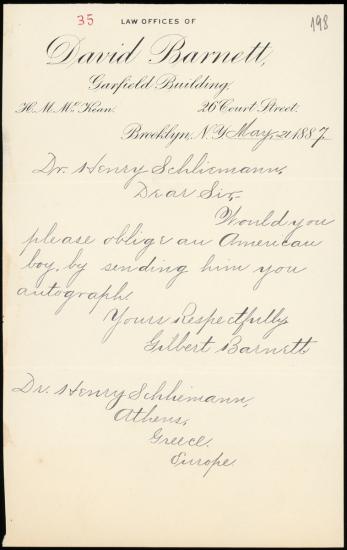 35 LAW OFFICES OF 198
David Barnett,
Garfield Building,
H. M. Mc Kean. 26 Court Street.
Brooklyn, N.Y. May 21 1887.
Dr. Henry Schliemann,
Dear Sir,
Would you
please oblige an American
boy, by sending him you
autograph.
Yours Respectfully
Gilbert Barnett
Dr. Henry Schliemann,
Athens,
Greece.
Europe.